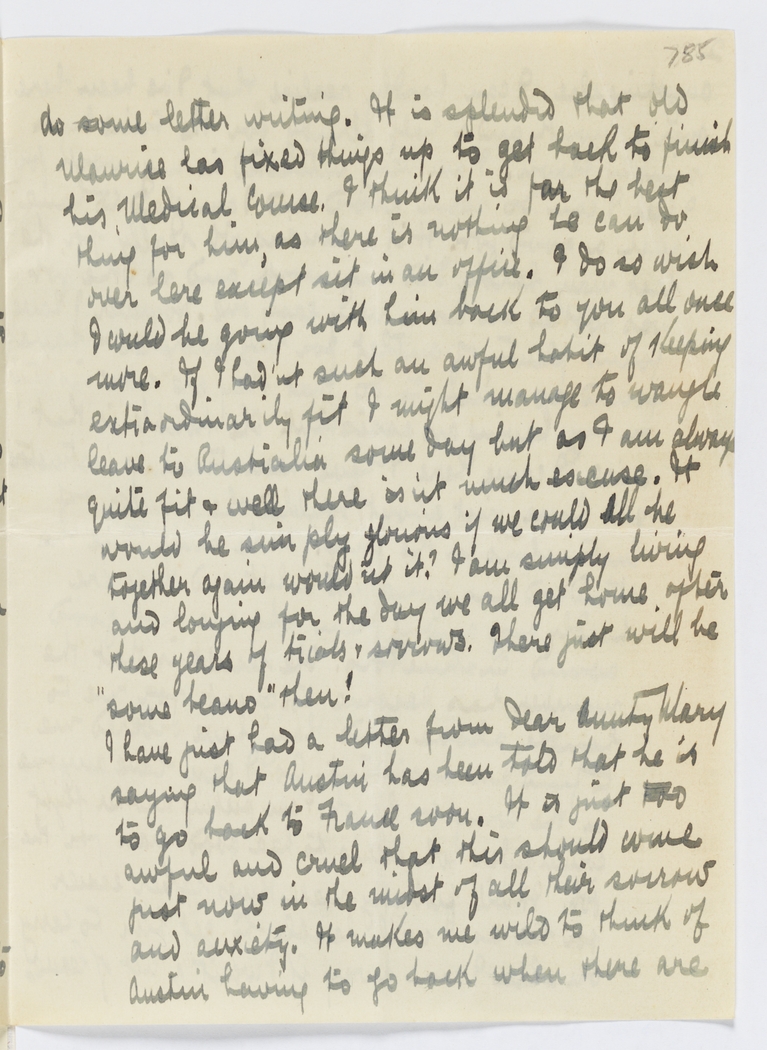 785
do some letter writing. It is splendid that old
Maurice has fixed things up to get back to finish
his Medical Course. I think it is far the best
thing for him, as there is nothing he can do
over here except sit in an office. I do so wish
I would be going with him back to you all once
more. If I had'nt such an awful habit of keeping
extraordinarily fit I might manage to wangle
leave to Australia some day but as I am always
quite fit & well there is'nt much excuse. It
would be simply glorious if we could all be
together again would'nt it? I am simply living
and longing for the day we all get home after
these years of trials & sorrows. There just will be
"some beano" then!
I have just had a letter from dear Aunty Mary
saying that Austin has been told that he is
to go back to France soon. It is just too
awful and cruel that this should come
just now in the midst of all their sorrow
and anxiety. It makes me wild to think of
Austin having to go back when there are